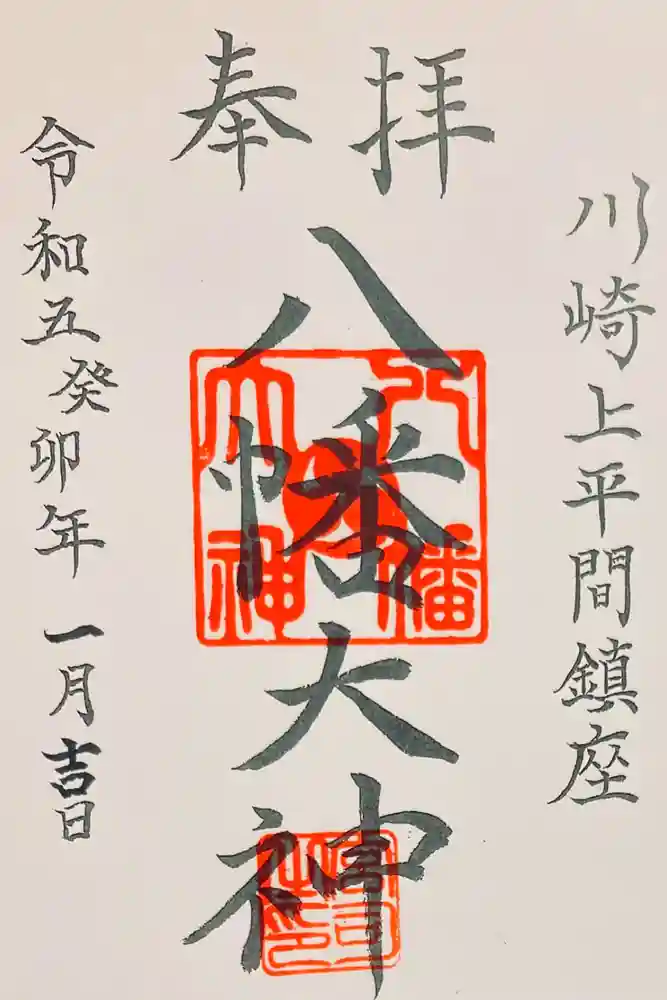 川崎上平間鎮座
奉拝
八幡大神
令和五癸卯年 一月吉日
八幡大神
宮司之印